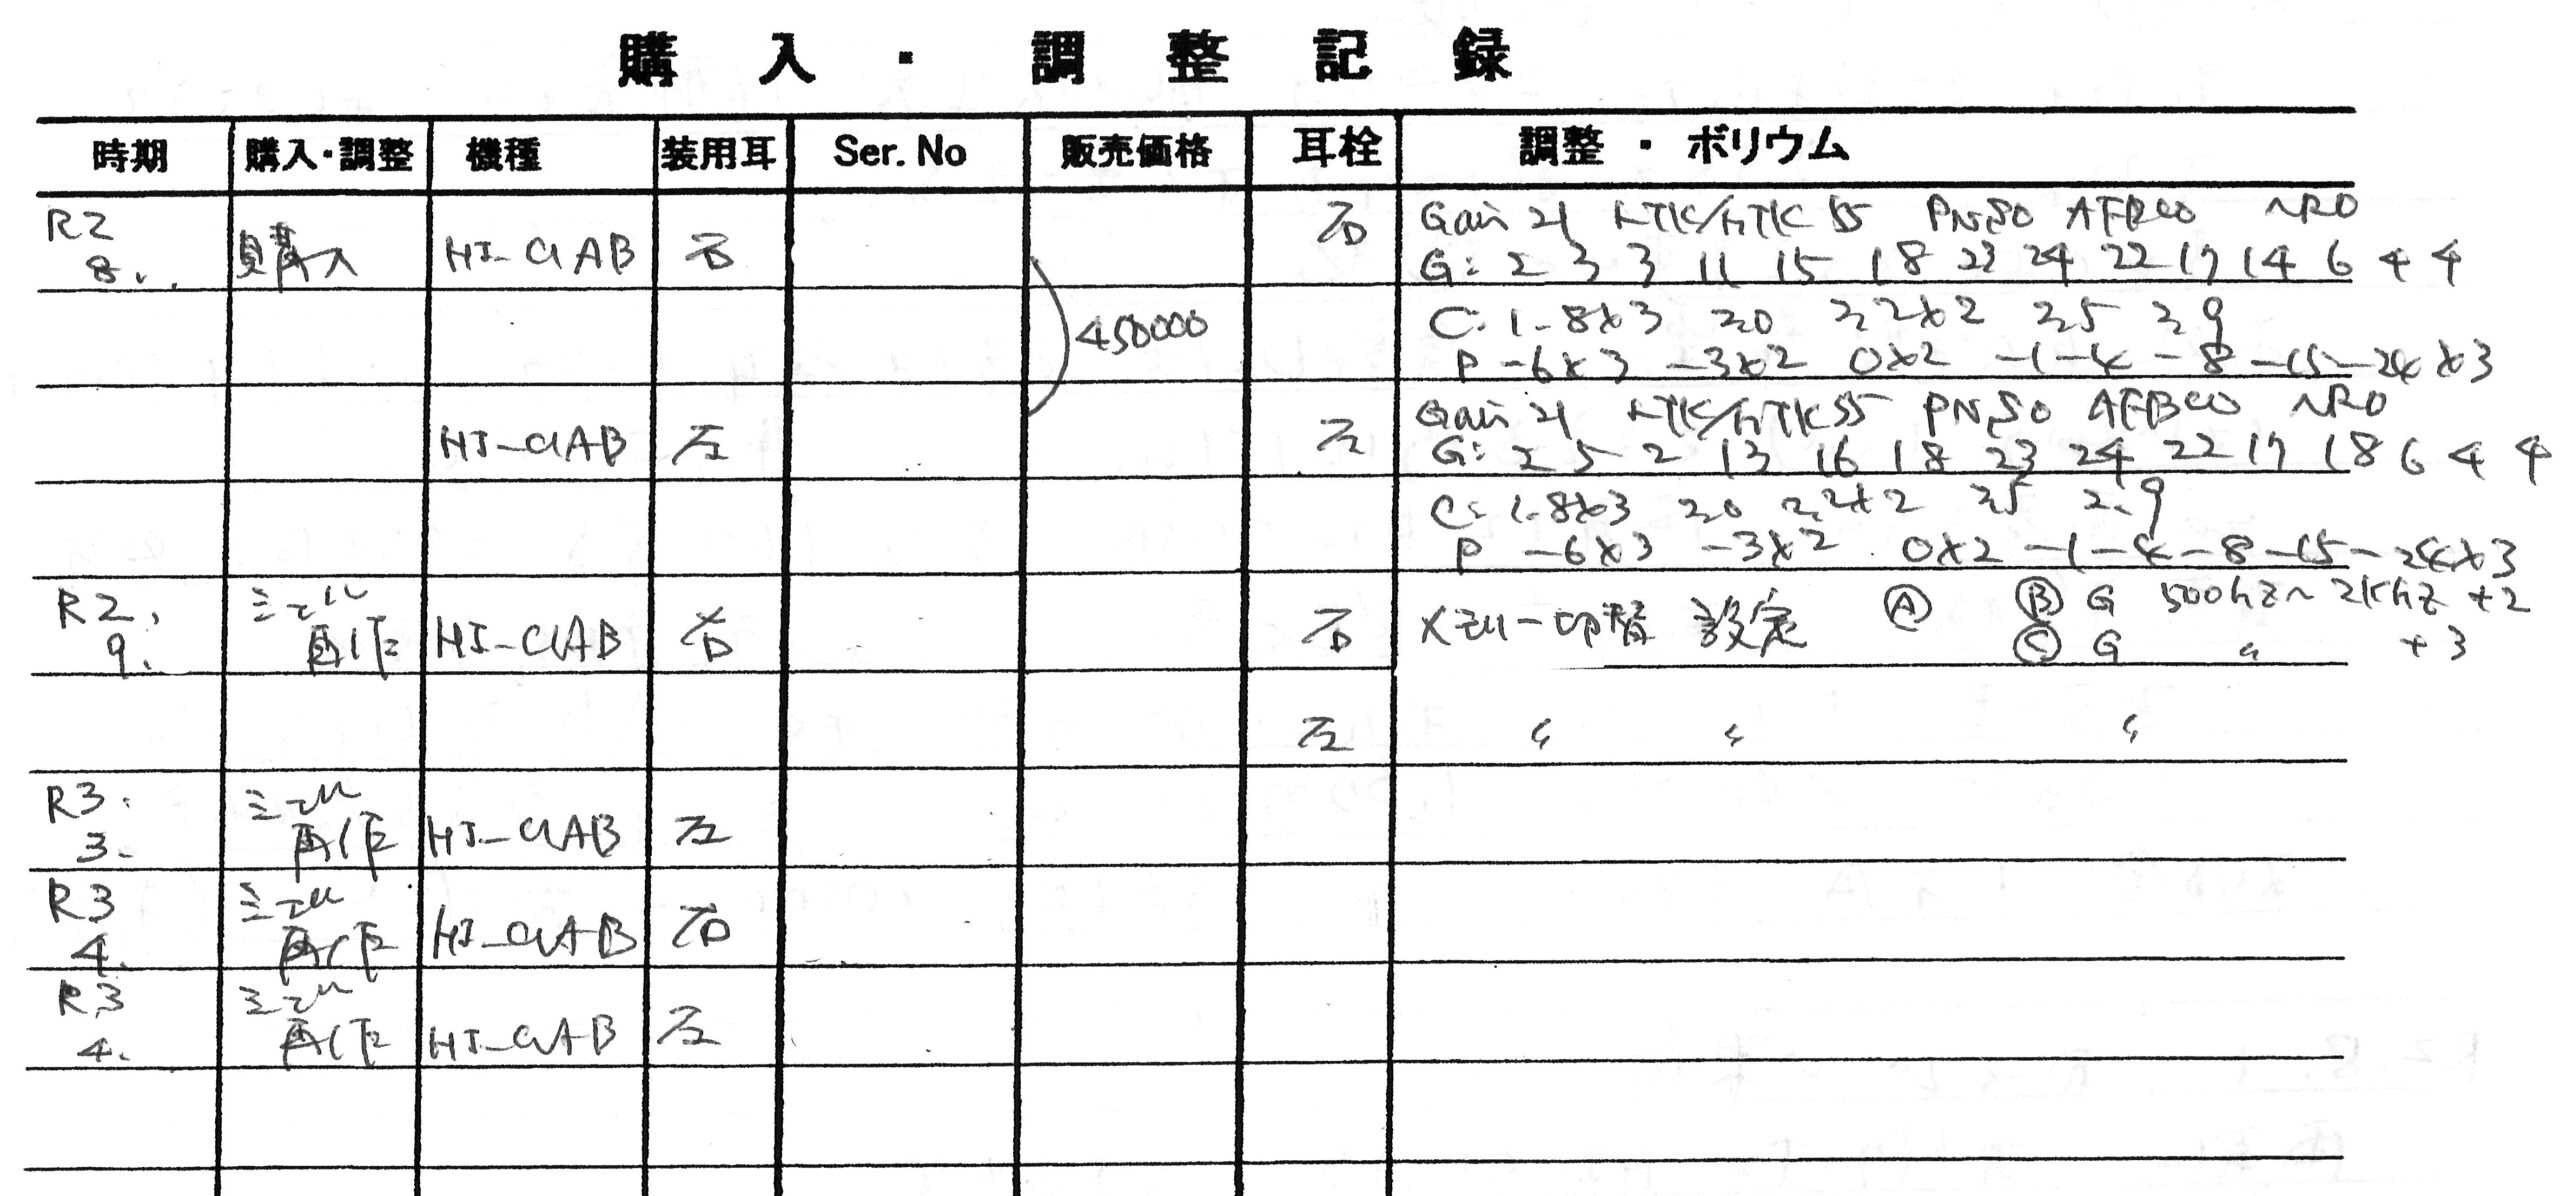 購入・調整記録
時期 購入・調整 機種 装用耳 Ser. No 販売価格 耳栓 調整・ボリウム
R2 8. 購入 HI-G1AB 右 右 Gain 21 LTK/HTK 55 PN50 AFBCO NR0
G: 2 3 3 11 15 18 23 24 22 17 14 6 4 4
450000 C: 1.8×3 2.0 2.2×2 2.5 2.9
P -6×3 -3×2 0×2 -1 -4 -8 -15 -24×3
HI-G1AB 左 左 Gain 21 LTK/HTK 55 PN50 AFBCO NR0
G: 2 5 2 13 16 18 23 24 22 17 18 6 4 4
C: 1.8×3 2.0 2.2×2 2.5 2.9
P -6×3 -3×2 0×2 -1 -4 -8 -15 -24×3
R2. 9. シェル 再作 HI-G1AB 右 右 メモリー切替 設定 Ⓐ Ⓑ G 500hz~2Khz +2
Ⓒ G 〃 +3
左 〃 〃 〃
R3. 3. シェル 再作 HI-G1AB 左
R3 4. シェル 再作 HI-G1AB 右
R3 4. シェル 再作 HI-G1AB 左